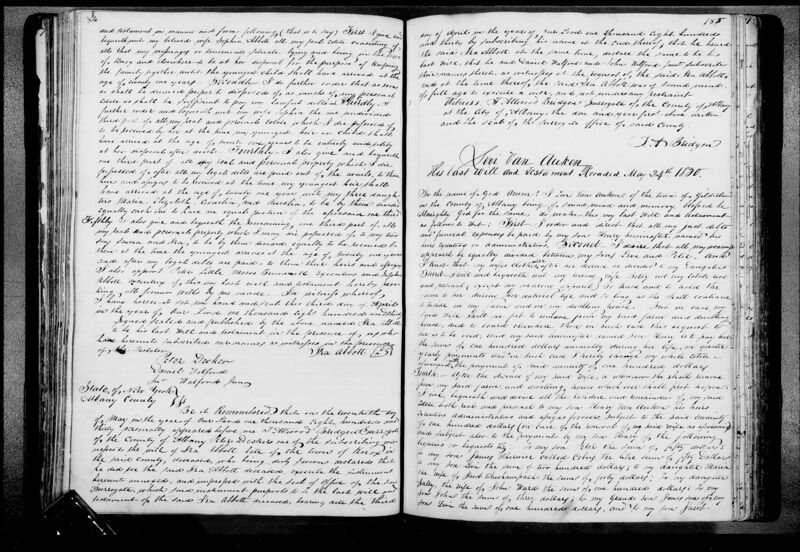 84
and testament in manner and form following (that is to say) First I give and
bequeath unto my beloved wife Sophia Abbott all my real estate consisting of
all that my messuages or tenements situate lying and being in the Town
of Knox and elsewhere to be at her disposal for the purpose of keeping
the family together until the youngest child shall have arrived at the
age of twenty one years Secondly I do further order that as soon
as shall be deemed proper to dispose of as much of my personal
estate as shall be sufficient to pay my lawful debts Thirdly I
further order and bequeath unto my wife Sophia the one undivided
third part of all my real and personal estate which I die possessed of
to be possessed by her at the time my youngest heir or child shall
have arrived at the age of twenty one years to be entirely and solely
at her disposal after wards Fourthly I also give and bequeath
one third part of all my real and personal property which I die
possessed of after all my legal debts are paid out of the avails, to them
heirs and assigns to be received at the time my youngest heir shall
have arrived at the age of twenty one years with my three daugh-
ters Maria, Elizabeth Cornelia and Aurelia, to be by them divided
equally each one to have an equal portion of the aforesaid one third
Fifthly I also give and bequeath the remaining one third part of all
my real and personal property which I may die possessed of to my two
boys and Ira, to be by them divided equally to be received by
them at the time the youngest arrives at the age of twenty one years
and after my legal debts are paid to them their heirs and assigns
I also appoint Peter Little Moses Executors and Sophia
Abbott executrix of this my last will and testament hereby revo-
king all former wills by me made. In witness whereof
I have hereunto set my hand and seal this third day of April
in the year of our Lord one thousand Eight hundred and thirty
Signed sealed and published by the above named Ira Abbott
to be his last Will and testament in the presence of us who
have hereunto subscribed our names as witnesses in the presence
of the Testator Ira Abbott [L.S.]
Peter Decker
Daniel Watford
Jno Watford Junr
State of New York
Albany County } ss
Be it Remembered that on the twentieth day
of May in the year of our Lord one thousand Eight hundred and
thirty personally appeared before me T. Attwood Bridgen Surrogate
of the County of Albany Peter Decker one of the subscribing wit-
nesses to the will of Ira Abbott late of the town of Knox in
the said County, deceased, who being duly sworn declared that
he did see the said Ira Abbott deceased, execute the instrument
hereunto annexed, and impressed with the seal of office of the said
Surrogate, which said instrument purports to be the last will and
testament of the said Ira Abbott deceased, bearing date the third
185
day of April in the year of our Lord one thousand Eight hundred
and thirty by subscribing his name at the end thereof, that he heard
the said Ira Abbott at the same time, declare the same to be his
last Will, that he and Daniel Watford and John Watford Junr. subscribed
their names thereto as witnesses at the request of the said Ira Abbott,
and at the time thereof, the said Ira Abbott was of sound mind,
of full age to execute a will, and not under any restraint.
Witness, T. Attwood Bridgen Surrogate of the County of Albany
at the City of Albany, the day and year first above written
and the seal of the Surrogate office of said County.
T. A. Bridgen
Levi Van Auken
His Last Will and Testament Recorded May 24th 1830.
In the name of God Amen! I Levi Van Auken of the town of Guilderland
in the County of Albany being of sound mind and memory blessed be
Almighty God for the same, do make this my last Will and testament
as follows to wit: First I order and direct that all my just debts
and funeral expenses be paid by my son Henry hereinafter named his
executors or administrators Second I desire that all my wearing
apparel be equally divided between my sons Levi and Peter. And
I trust that my wife's clothes after her decease be divided by my daughters
Third I will and bequeath unto my beloved wife Caty all my estate real
and personal (except my wearing apparel) to have and to hold the
same to her during her natural life and so long as she shall continue
to reside in my now residence or dwelling house. But in case my
said wife shall see fit to remove from my said farm and dwelling
house and to board elsewhere then in such case this bequest to
her is to be void, and my son hereinafter named Son Henry is to pay her
the sum of one hundred dollars annually during her life, in quarter
yearly payments and in such case I hereby charge my whole estate
with the payment of said annuity of one hundred dollars
Fourth After the decease of my said Wife or whenever she shall remove
from my said farm, and dwelling house which ever shall first happen
I give, bequeath and devise all the residue and remainder of my said
Estate both real and personal to my son Henry Van Auken his heirs
executors administrators and assigns forever, subject to the said annuity
of one hundred dollars (in case of the removal of my said wife as aforesaid)
and subject also to the payment by my son Henry of the following
legacies or bequests by to my son Peter the sum of fifty dollars,
to my son James otherwise called Cobus the like sum of fifty dollars
to my son Levi the sum of two hundred dollars; to my daughter Maria
the wife of Jacob the sum of forty dollars; to my daughter
Sally, the wife of John Ward the sum of one hundred dollars; to my
son John the sum of three dollars; to my Grand son James son of my
son Levi the sum of one hundred dollars, and to my son Jacob